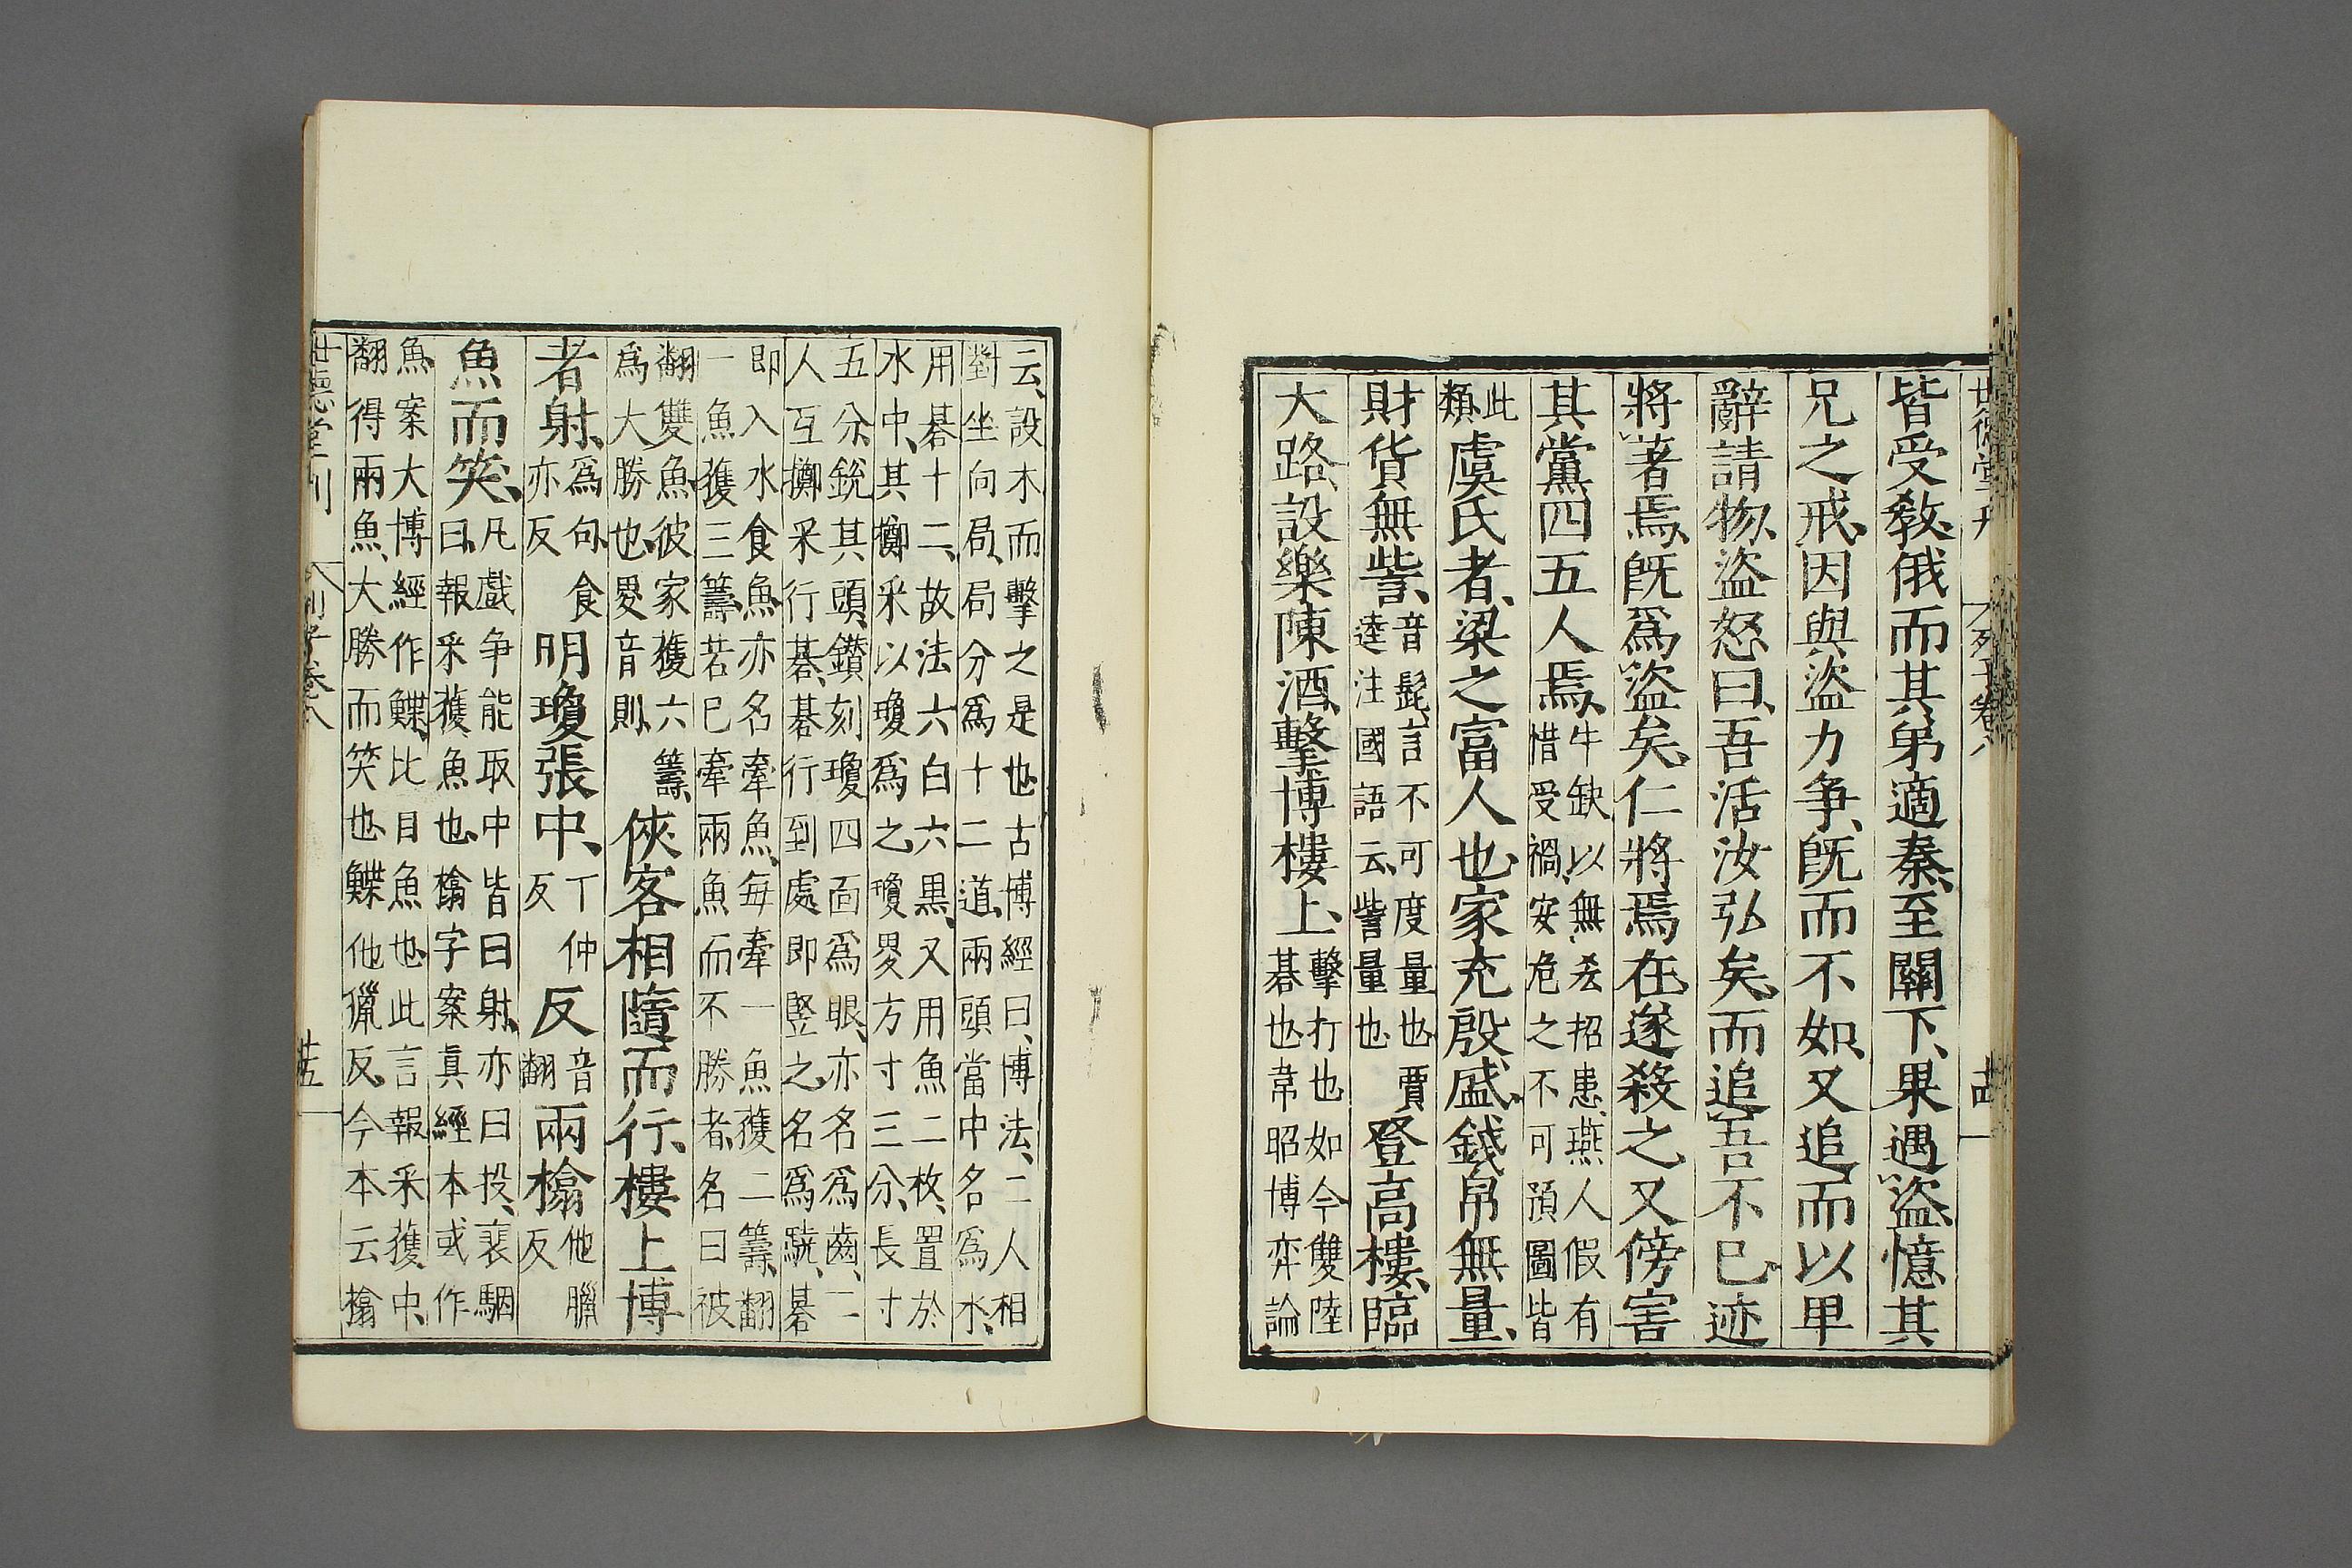 世德堂刊 列子卷八 卄四
皆受教俄而其弟適秦至關下果遇盜憶其
兄之戒因與盜力爭既而不如又追而以卑
辭請物盜怒曰吾活汝弘矣而追吾不已迹
將著焉既爲盜矣仁將焉在遂殺之又傍害
其黨四五人焉
牛缺以無㳟招患燕人假有
惜受禍安危之不可預圖皆
此
類
虞氏者梁之富人也家充殷盛錢帛無量
財貨無訾
音髭言不可度量也賈
逵注國語云訾量也
登高樓臨
大路設樂陳酒擊博樓上
擊打也如今雙陸
碁也韋昭博弈論
云設木而擊之是也古博經曰博法二人相
對坐向局局分爲十二道兩頭當中名爲水
用碁十二故法六白六黒又用魚二枚置於
水中其擲采以瓊爲之瓊畟方寸三分長寸
五分銳其頭鑽刻瓊四面爲眼亦名爲齒二
人互擲采行碁碁行到處即竪之名爲驍碁
即入水食魚亦名牽魚每牽一魚獲二籌翻
一魚獲三籌若已牽兩魚而不勝者名曰被
翻雙魚彼家獲六籌
爲大勝也愛音則
俠客相隨而行樓上博
者射
爲句食
亦反
明瓊張中
丁仲
反
反
音
翻
兩㯓
他臘
反
魚而笑
凡戲争能取中皆曰射亦曰投裴駰
曰報采獲魚也㯓字案真經本或作
魚案大博經作鰈比目魚也此言報采獲中
翻得兩魚大勝而笑也鰈他獵反今本云㯓
世德堂刊 列子卷八 卄五